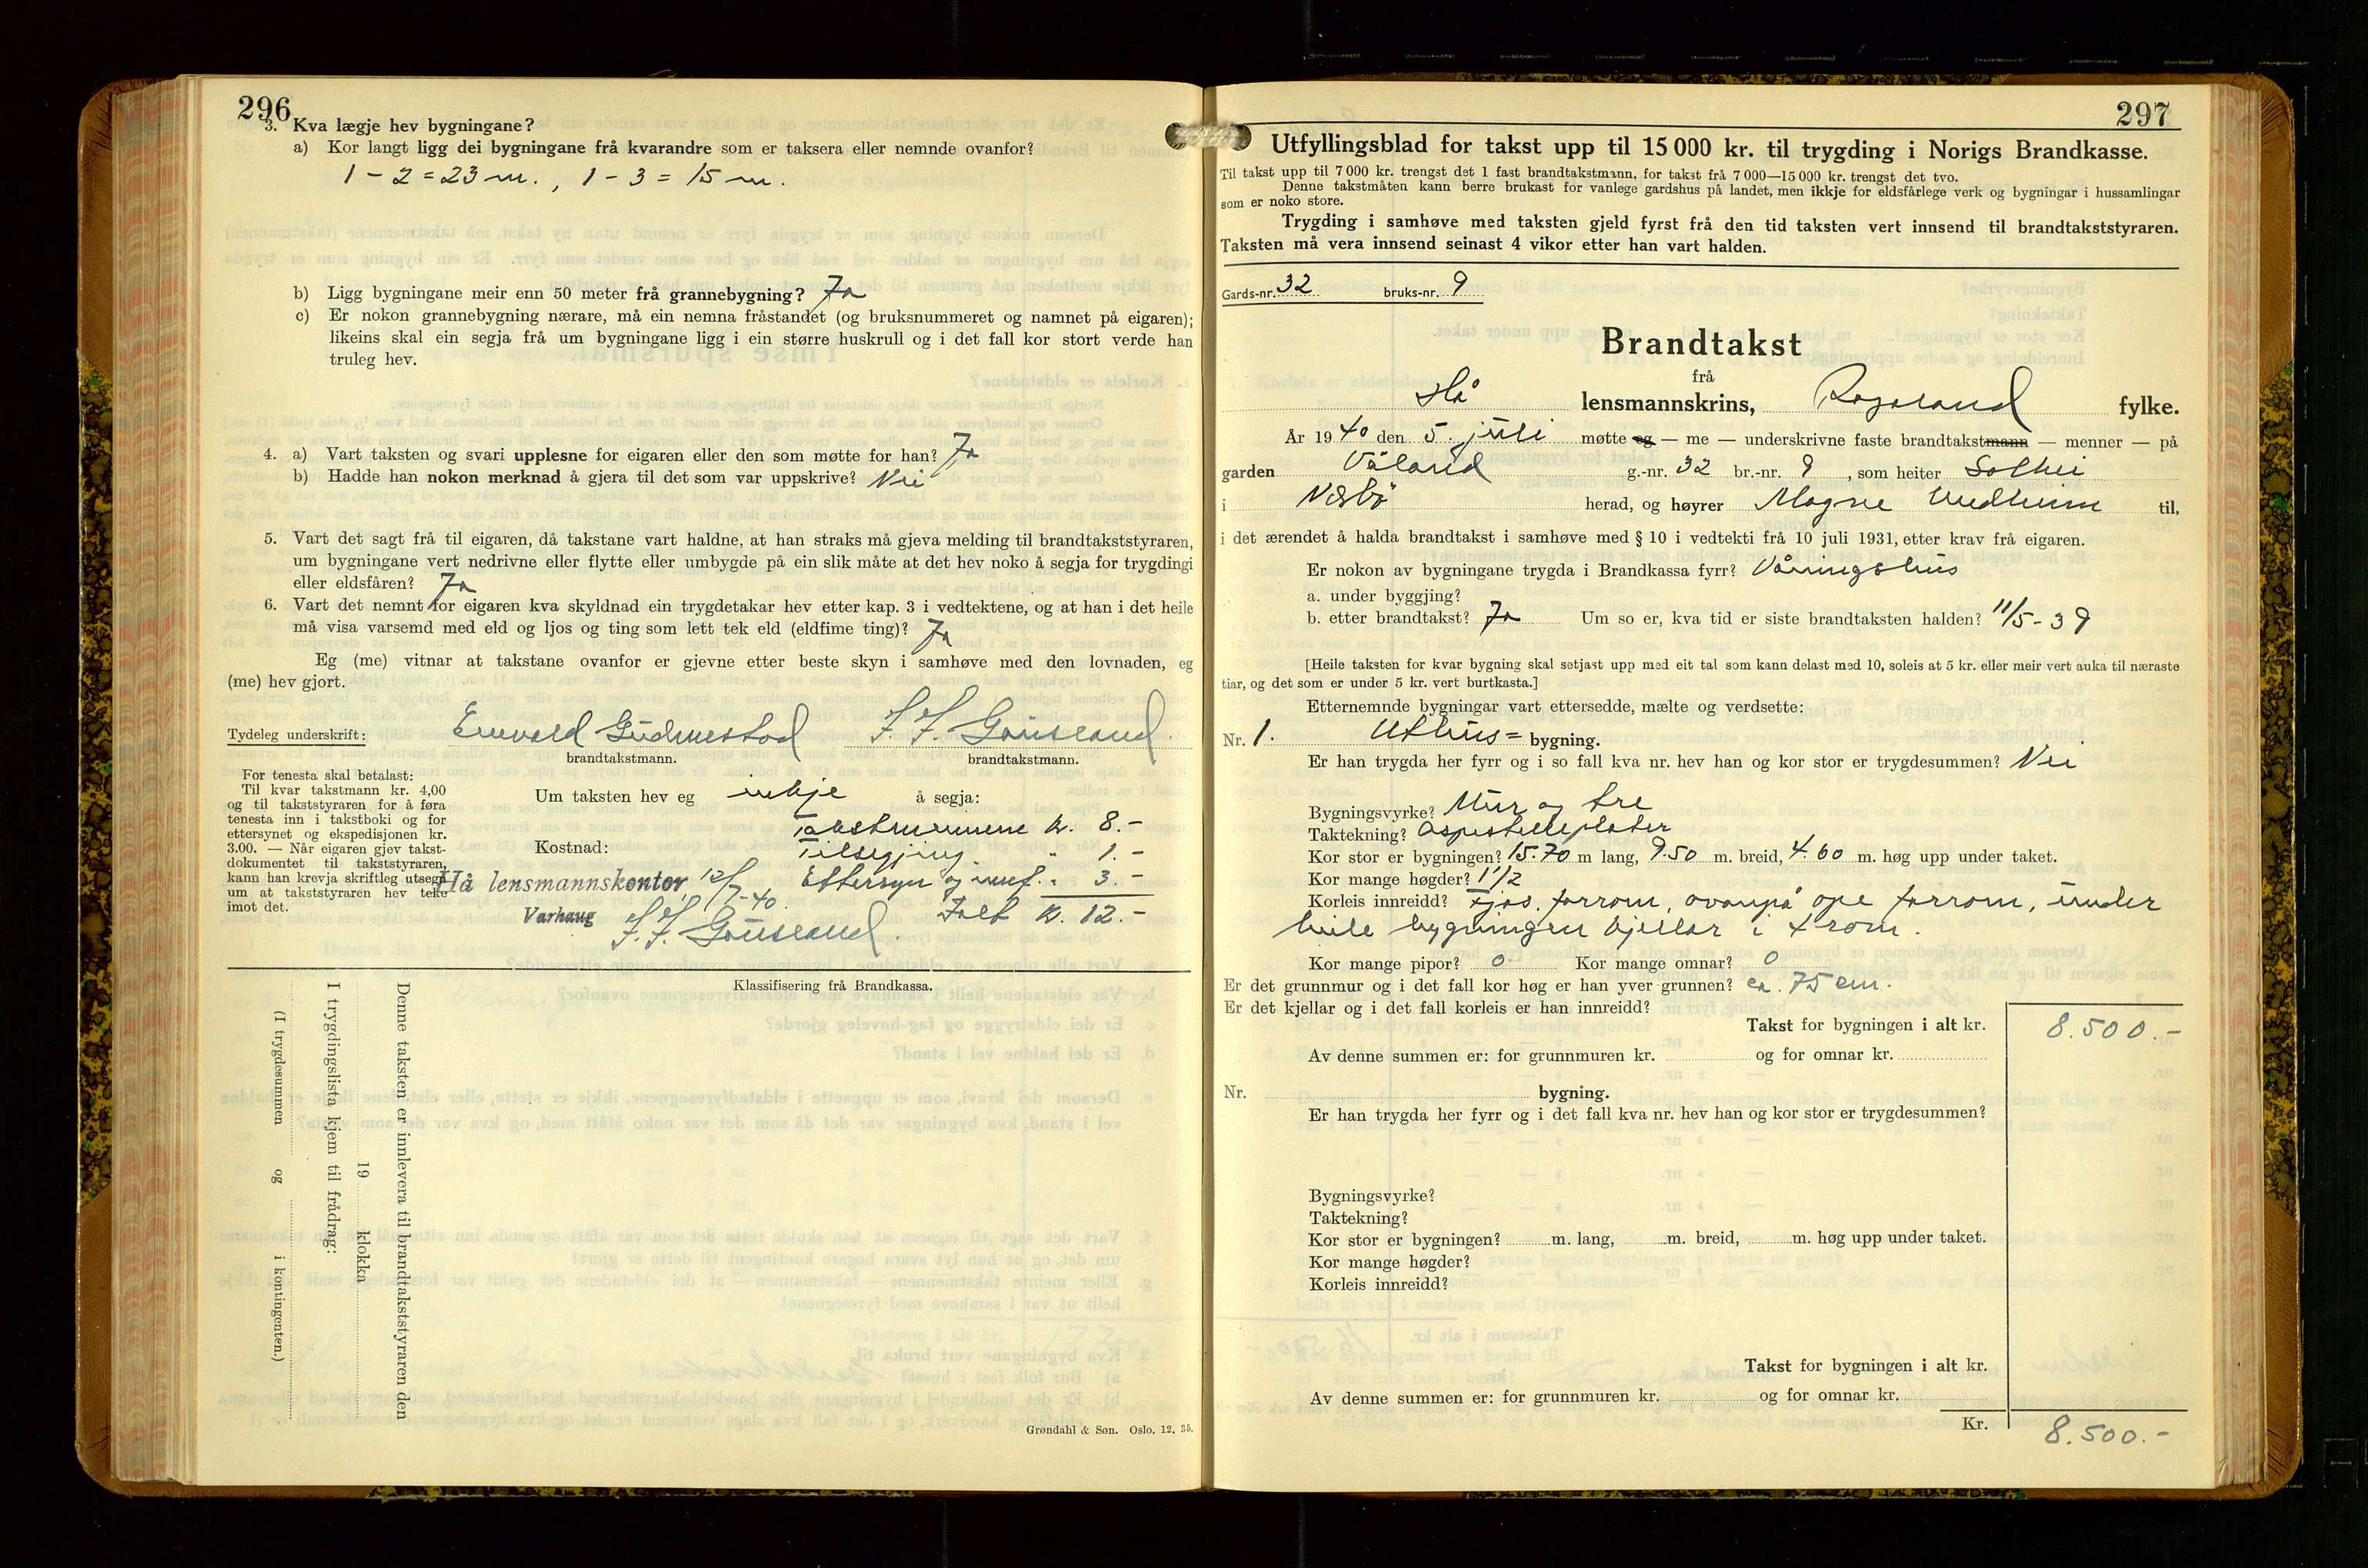 296
3. Kva lægje hev bygningane?
a) Kor langt ligg dei bygningane frå kvarandre som er taksera eller nemnde ovanfor?
1 - 2 = 23 m. , 1 - 3 = 15 m.
b) Ligg bygningane meir enn 50 meter frå grannebygning? Ja
c) Er nokon grannebygning nærare, må ein nemna fråstandet (og bruksnummeret og namnet på eigaren);
likeins skal ein segja frå um bygningane ligg i ein større huskrull og i det fall kor stort verde han
truleg hev.
4. a) Vart taksten og svari upplesne for eigaren eller den som møtte for han? Ja
b) Hadde han nokon merknad å gjera til det som var uppskrive? Nei
5. Vart det sagt frå til eigaren, då takstane vart haldne, at han straks må gjeva melding til brandtakststyraren,
um bygningane vert nedrivne eller flytte eller umbygde på ein slik måte at det hev noko å segja for trygdingi
eller eldsfåren? Ja
6. Vart det nemnt for eigaren kva skyldnad ein trygdetakar hev etter kap. 3 i vedtektene, og at han i det heile
må visa varsemd med eld og ljos og ting som lett tek eld (eldfime ting)? Ja
Eg (me) vitnar at takstane ovanfor er gjevne etter beste skyn i samhøve med den lovnaden, eg
(me) hev gjort.
Tydeleg underskrift: Enevald Gudmestad
brandtakstmann. brandtakstmann.
For tenesta skal betalast:
Til kvar takstmann kr. 4,00
og til takststyraren for å føra
tenesta inn i takstboki og for
ettersynet og ekspedisjonen kr.
3.00. — Når eigaren gjev takst-
dokumentet til takststyraren,
kann han krevja skriftleg utsegn
um at takststyraren hev teke
imot det.
Um taksten hev eg inkje å segja:
Kostnad:
Takstmennene kr. 8.-
Tilsegjing " 1.-
Ettersyn og innf. " 3.-
Ialt kr. 12.-
Hå lensmannskontor, 12/7-40.
Varhaug
Klassifisering frå Brandkassa.
Denne taksten er innlevera til brandtakststyraren den
19 klokka
I trygdingslista kjem til frådrag:
(I trygdesummen og i kontingenten.)
Grøndahl & Søn. Oslo. 12. 35.
297
Utfyllingsblad for takst upp til 15 000 kr. til trygding i Norigs Brandkasse.
Til takst upp til 7 000 kr. trengst det 1 fast brandtakstmann, for takst frå 7 000—15 000 kr. trengst det tvo.
Denne takstmåten kann berre brukast for vanlege gardshus på landet, men ikkje for eldsfårlege verk og bygningar i hussamlingar
som er noko store.
Trygding i samhøve med taksten gjeld fyrst frå den tid taksten vert innsend til brandtakststyraren.
Taksten må vera innsend seinast 4 vikor etter han vart halden.
Gards-nr. 32 bruks-nr. 9
Brandtakst
frå
Hå lensmannskrins, Rogaland fylke.
År 1940 den 5. juli møtte eg — me — underskrivne faste brandtakstmann — menner — på
garden Våland g.-nr. 32 br.-nr. 9, som heiter Solhei
i Nærbø herad, og høyrer Magne Undheim til,
i det ærendet å halda brandtakst i samhøve med § 10 i vedtekti frå 10 juli 1931, etter krav frå eigaren.
Er nokon av bygningane trygda i Brandkassa fyrr? Våningshus
a. under byggjing?
b. etter brandtakst? Ja Um so er, kva tid er siste brandtaksten halden? 11/5-39
[Heile taksten for kvar bygning skal setjast upp med eit tal som kann delast med 10, soleis at 5 kr. eller meir vert auka til næraste
tiar, og det som er under 5 kr. vert burtkasta.]
Etternemnde bygningar vart ettersedde, mælte og verdsette:
Nr. 1. Uthus= bygning.
Er han trygda her fyrr og i so fall kva nr. hev han og kor stor er trygdesummen? Nei
Bygningsvyrke? Mur og tre
Taktekning? Aspestelleplater
Kor stor er bygningen? 15.70 m lang, 9.50 m. breid, 4.60 m. høg upp under taket.
Kor mange høgder? 1 1/2
Korleis innreidd? Fjos, forrom, ovanpå ope forrom, under
heile bygningen kjellar i 4 rom.
Kor mange pipor? 0 Kor mange omnar? 0
Er det grunnmur og i det fall kor høg er han yver grunnen? ca. 75 cm.
Er det kjellar og i det fall korleis er han innreidd?
Takst for bygningen i alt kr. 8.500.-
Av denne summen er: for grunnmuren kr. og for omnar kr.
Nr. bygning.
Er han trygda her fyrr og i det fall kva nr. hev han og kor stor er trygdesummen?
Bygningsvyrke?
Taktekning?
Kor stor er bygningen? m. lang, m. breid, m. høg upp under taket.
Kor mange høgder?
Korleis innreidd?
Takst for bygningen i alt kr.
Av denne summen er: for grunnmuren kr. og for omnar kr.
Kr. 8.500.-